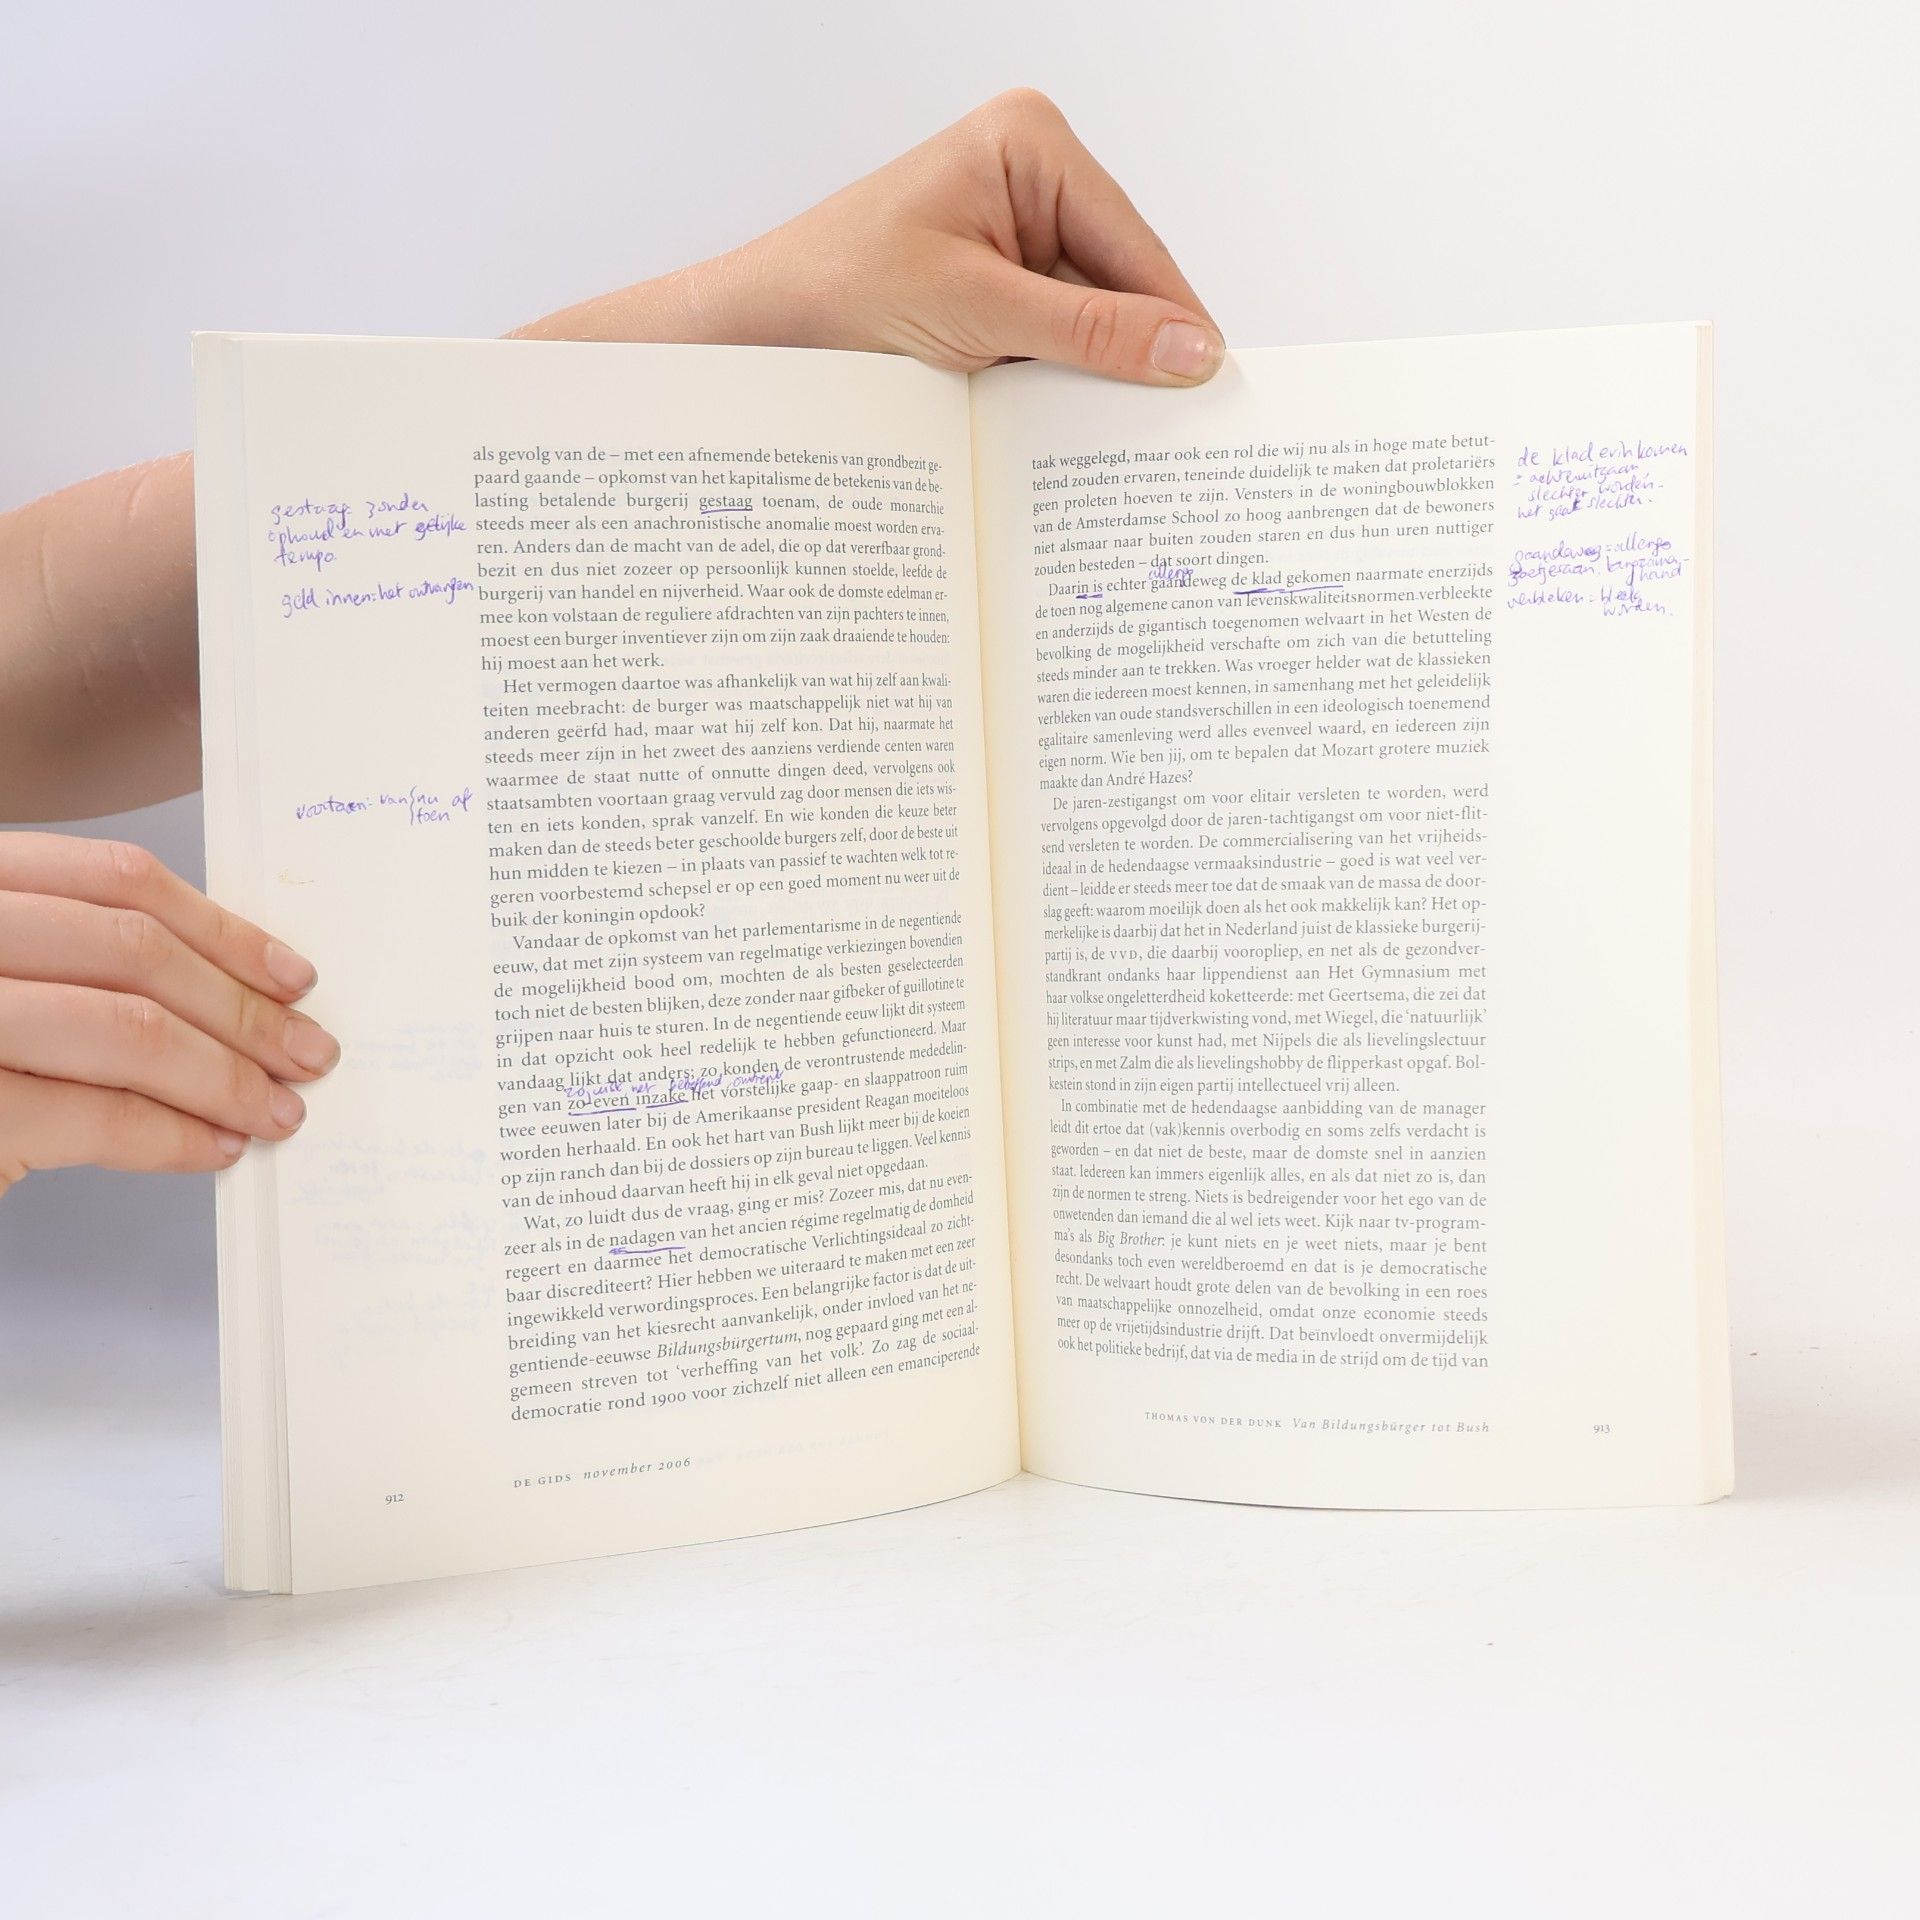 als gevolg van de – met een afnemende betekenis van grondbezit ge-
paard gaande – opkomst van het kapitalisme de betekenis van de be-
lasting betalende burgerij gestaag toenam, de oude monarchie
steeds meer als een anachronistische anomalie moest worden erva-
ren. Anders dan de macht van de adel, die op dat vererfbaar grond-
bezit en dus niet zozeer op persoonlijk kunnen stoelde, leefde de
burgerij van handel en nijverheid. Waar ook de domste edelman er-
mee kon volstaan de reguliere afdrachten van zijn pachters te innen,
moest een burger inventiever zijn om zijn zaak draaiende te houden:
hij moest aan het werk.
Het vermogen daartoe was afhankelijk van wat hij zelf aan kwali-
teiten meebracht: de burger was maatschappelijk niet wat hij van
anderen geërfd had, maar wat hij zelf kon. Dat hij, naarmate het
steeds meer zíjn in het zweet des aanziens verdiende centen waren
waarmee de staat nutte of onnutte dingen deed, vervolgens ook
staatsambten voortaan graag vervuld zag door mensen die iets wis-
ten en iets konden, sprak vanzelf. En wie konden die keuze beter
maken dan de steeds beter geschoolde burgers zelf, door de beste uit
hun midden te kiezen – in plaats van passief te wachten welk tot re-
geren voorbestemd schepsel er op een goed moment nu weer uit de
buik der koningin opdook?
Vandaar de opkomst van het parlementarisme in de negentiende
eeuw, dat met zijn systeem van regelmatige verkiezingen bovendien
de mogelijkheid bood om, mochten de als besten geselecteerden
toch niet de besten blijken, deze zonder naar gifbeker of guillotine te
grijpen naar huis te sturen. In de negentiende eeuw lijkt dit systeem
in dat opzicht ook heel redelijk te hebben gefunctioneerd. Maar
vandaag lijkt dat anders; zo konden de verontrustende mededelin-
zojuist met betreffend omtrent
gen van zo-even inzake het vorstelijke gaap- en slaappatroon ruim
twee eeuwen later bij de Amerikaanse president Reagan moeiteloos
worden herhaald. En ook het hart van Bush lijkt meer bij de koeien
op zijn ranch dan bij de dossiers op zijn bureau te liggen. Veel kennis
van de inhoud daarvan heeft hij in elk geval niet opgedaan.
Wat, zo luidt dus de vraag, ging er mis? Zozeer mis, dat nu even-
zeer als in de nadagen van het ancien régime regelmatig de domheid
regeert en daarmee het democratische Verlichtingsideaal zo zicht-
baar discrediteert? Hier hebben we uiteraard te maken met een zeer
ingewikkeld verwordingsproces. Een belangrijke factor is dat de uit-
breiding van het kiesrecht aanvankelijk, onder invloed van het ne-
gentiende-eeuwse Bildungsbürgertum, nog gepaard ging met een al-
gemeen streven tot ‘verheffing van het volk’. Zo zag de sociaal-
democratie rond 1900 voor zichzelf niet alleen een emanciperende
gestaag: zonder
ophouden en met gelijke
tempo.
geld innen: het ontvangen
voortaan: van nu af
toen
DE GIDS november 2006
912
taak weggelegd, maar ook een rol die wij nu als in hoge mate betut-
telend zouden ervaren, teneinde duidelijk te maken dat proletariërs
geen proleten hoeven te zijn. Vensters in de woningbouwblokken
van de Amsterdamse School zo hoog aanbrengen dat de bewoners
niet alsmaar naar buiten zouden staren en dus hun uren nuttiger
zouden besteden – dat soort dingen.
allengs
Daarin is echter gaandeweg de klad gekomen naarmate enerzijds
de toen nog algemene canon van levenskwaliteitsnormen verbleekte
en anderzijds de gigantisch toegenomen welvaart in het Westen de
bevolking de mogelijkheid verschafte om zich van die betutteling
steeds minder aan te trekken. Was vroeger helder wat de klassieken
waren die iedereen moest kennen, in samenhang met het geleidelijk
verbleken van oude standsverschillen in een ideologisch toenemend
egalitaire samenleving werd alles evenveel waard, en iedereen zijn
eigen norm. Wie ben jij, om te bepalen dat Mozart grotere muziek
maakte dan André Hazes?
De jaren-zestigangst om voor elitair versleten te worden, werd
vervolgens opgevolgd door de jaren-tachtigangst om voor niet-flit-
send versleten te worden. De commercialisering van het vrijheids-
ideaal in de hedendaagse vermaaksindustrie – goed is wat veel ver-
dient – leidde er steeds meer toe dat de smaak van de massa de door-
slag geeft: waarom moeilijk doen als het ook makkelijk kan? Het op-
merkelijke is daarbij dat het in Nederland juist de klassieke burgerij-
partij is, de VVD, die daarbij vooropliep, en net als de gezondver-
standkrant ondanks haar lippendienst aan Het Gymnasium met
haar volkse ongeletterdheid koketteerde: met Geertsema, die zei dat
hij literatuur maar tijdverkwisting vond, met Wiegel, die ‘natuurlijk’
geen interesse voor kunst had, met Nijpels die als lievelingslectuur
strips, en met Zalm die als lievelingshobby de flipperkast opgaf. Bol-
kestein stond in zijn eigen partij intellectueel vrij alleen.
In combinatie met de hedendaagse aanbidding van de manager
leidt dit ertoe dat (vak)kennis overbodig en soms zelfs verdacht is
geworden – en dat niet de beste, maar de domste snel in aanzien
staat. Iedereen kan immers eigenlijk alles, en als dat niet zo is, dan
zijn de normen te streng. Niets is bedreigender voor het ego van de
onwetenden dan iemand die al wel iets weet. Kijk naar tv-program-
ma's als Big Brother: je kunt niets en je weet niets, maar je bent
desondanks toch even wereldberoemd en dat is je democratische
recht. De welvaart houdt grote delen van de bevolking in een roes
van maatschappelijke onnozelheid, omdat onze economie steeds
meer op de vrijetijdsindustrie drijft. Dat beïnvloedt onvermijdelijk
ook het politieke bedrijf, dat via de media in de strijd om de tijd van
de klad erin komen
= achteruitgaan
slechter worden.
het gaat slechter.
gaandeweg = allengs
zoetjesaan. langzamer-
hand
verbleken = bleek
worden.
THOMAS VON DER DUNK Van Bildungsbürger tot Bush
913